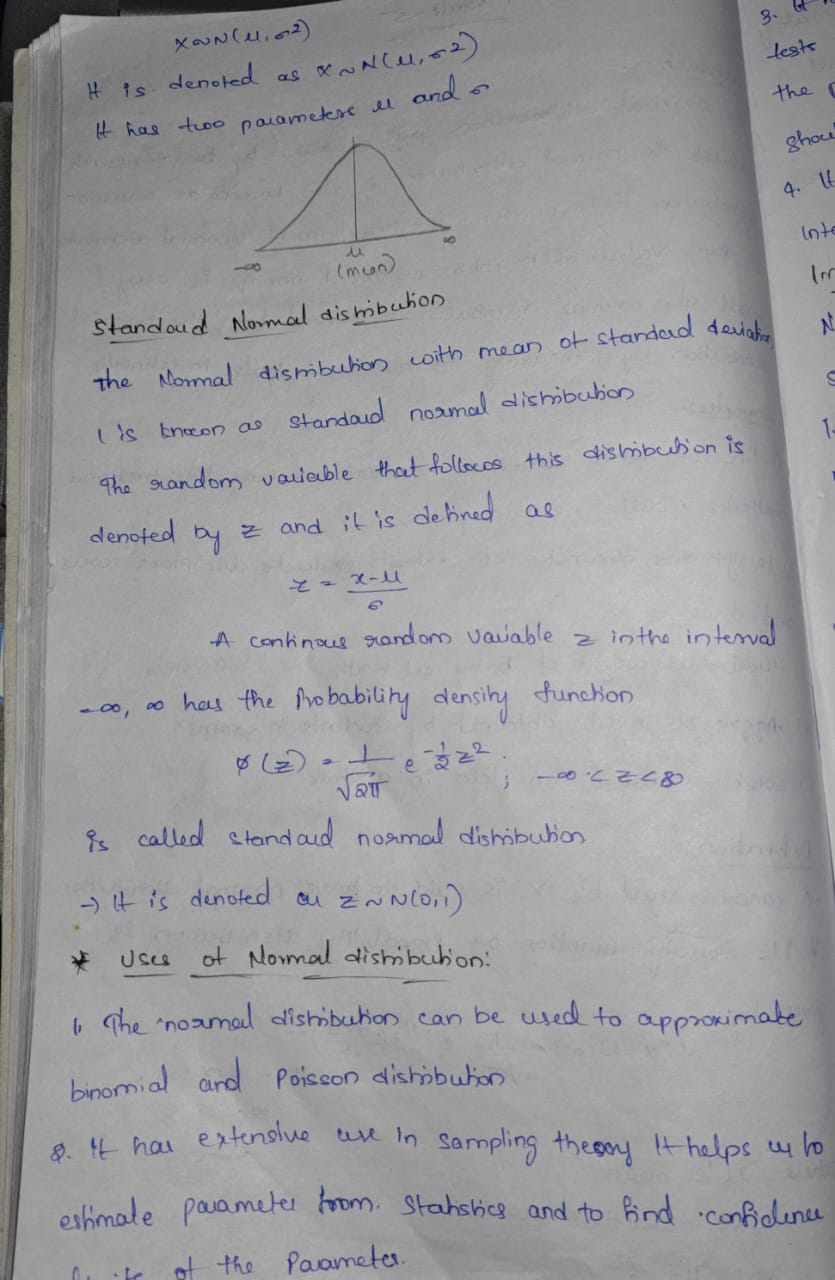 X~N(μ,σ2)
It is denoted as x~N(μ,σ2)
It has two parameters μ and σ
-∞ μ ∞
(mean)
Standard Normal distribution
the Normal distribution with mean of standard deviation
1 is known as standard normal distribution
The random variable that follows this distribution is
denoted by z and it is defined as
z = x-μ / σ
A continous random variable z in the interval
-∞, ∞ has the Probability density function
φ(z) = 1/√2π e^-1/2 z^2 ; -∞ < z < ∞
is called standard normal distribution
→ It is denoted as z~N(0,1)
* Uses of Normal distribution:
1. The normal distribution can be used to approximate
binomial and Poisson distribution
2. It has extensive use in sampling theory It helps us to
estimate parameter from. Statistics and to find confidence
of the Parameter.
3.
tests
the
4. It